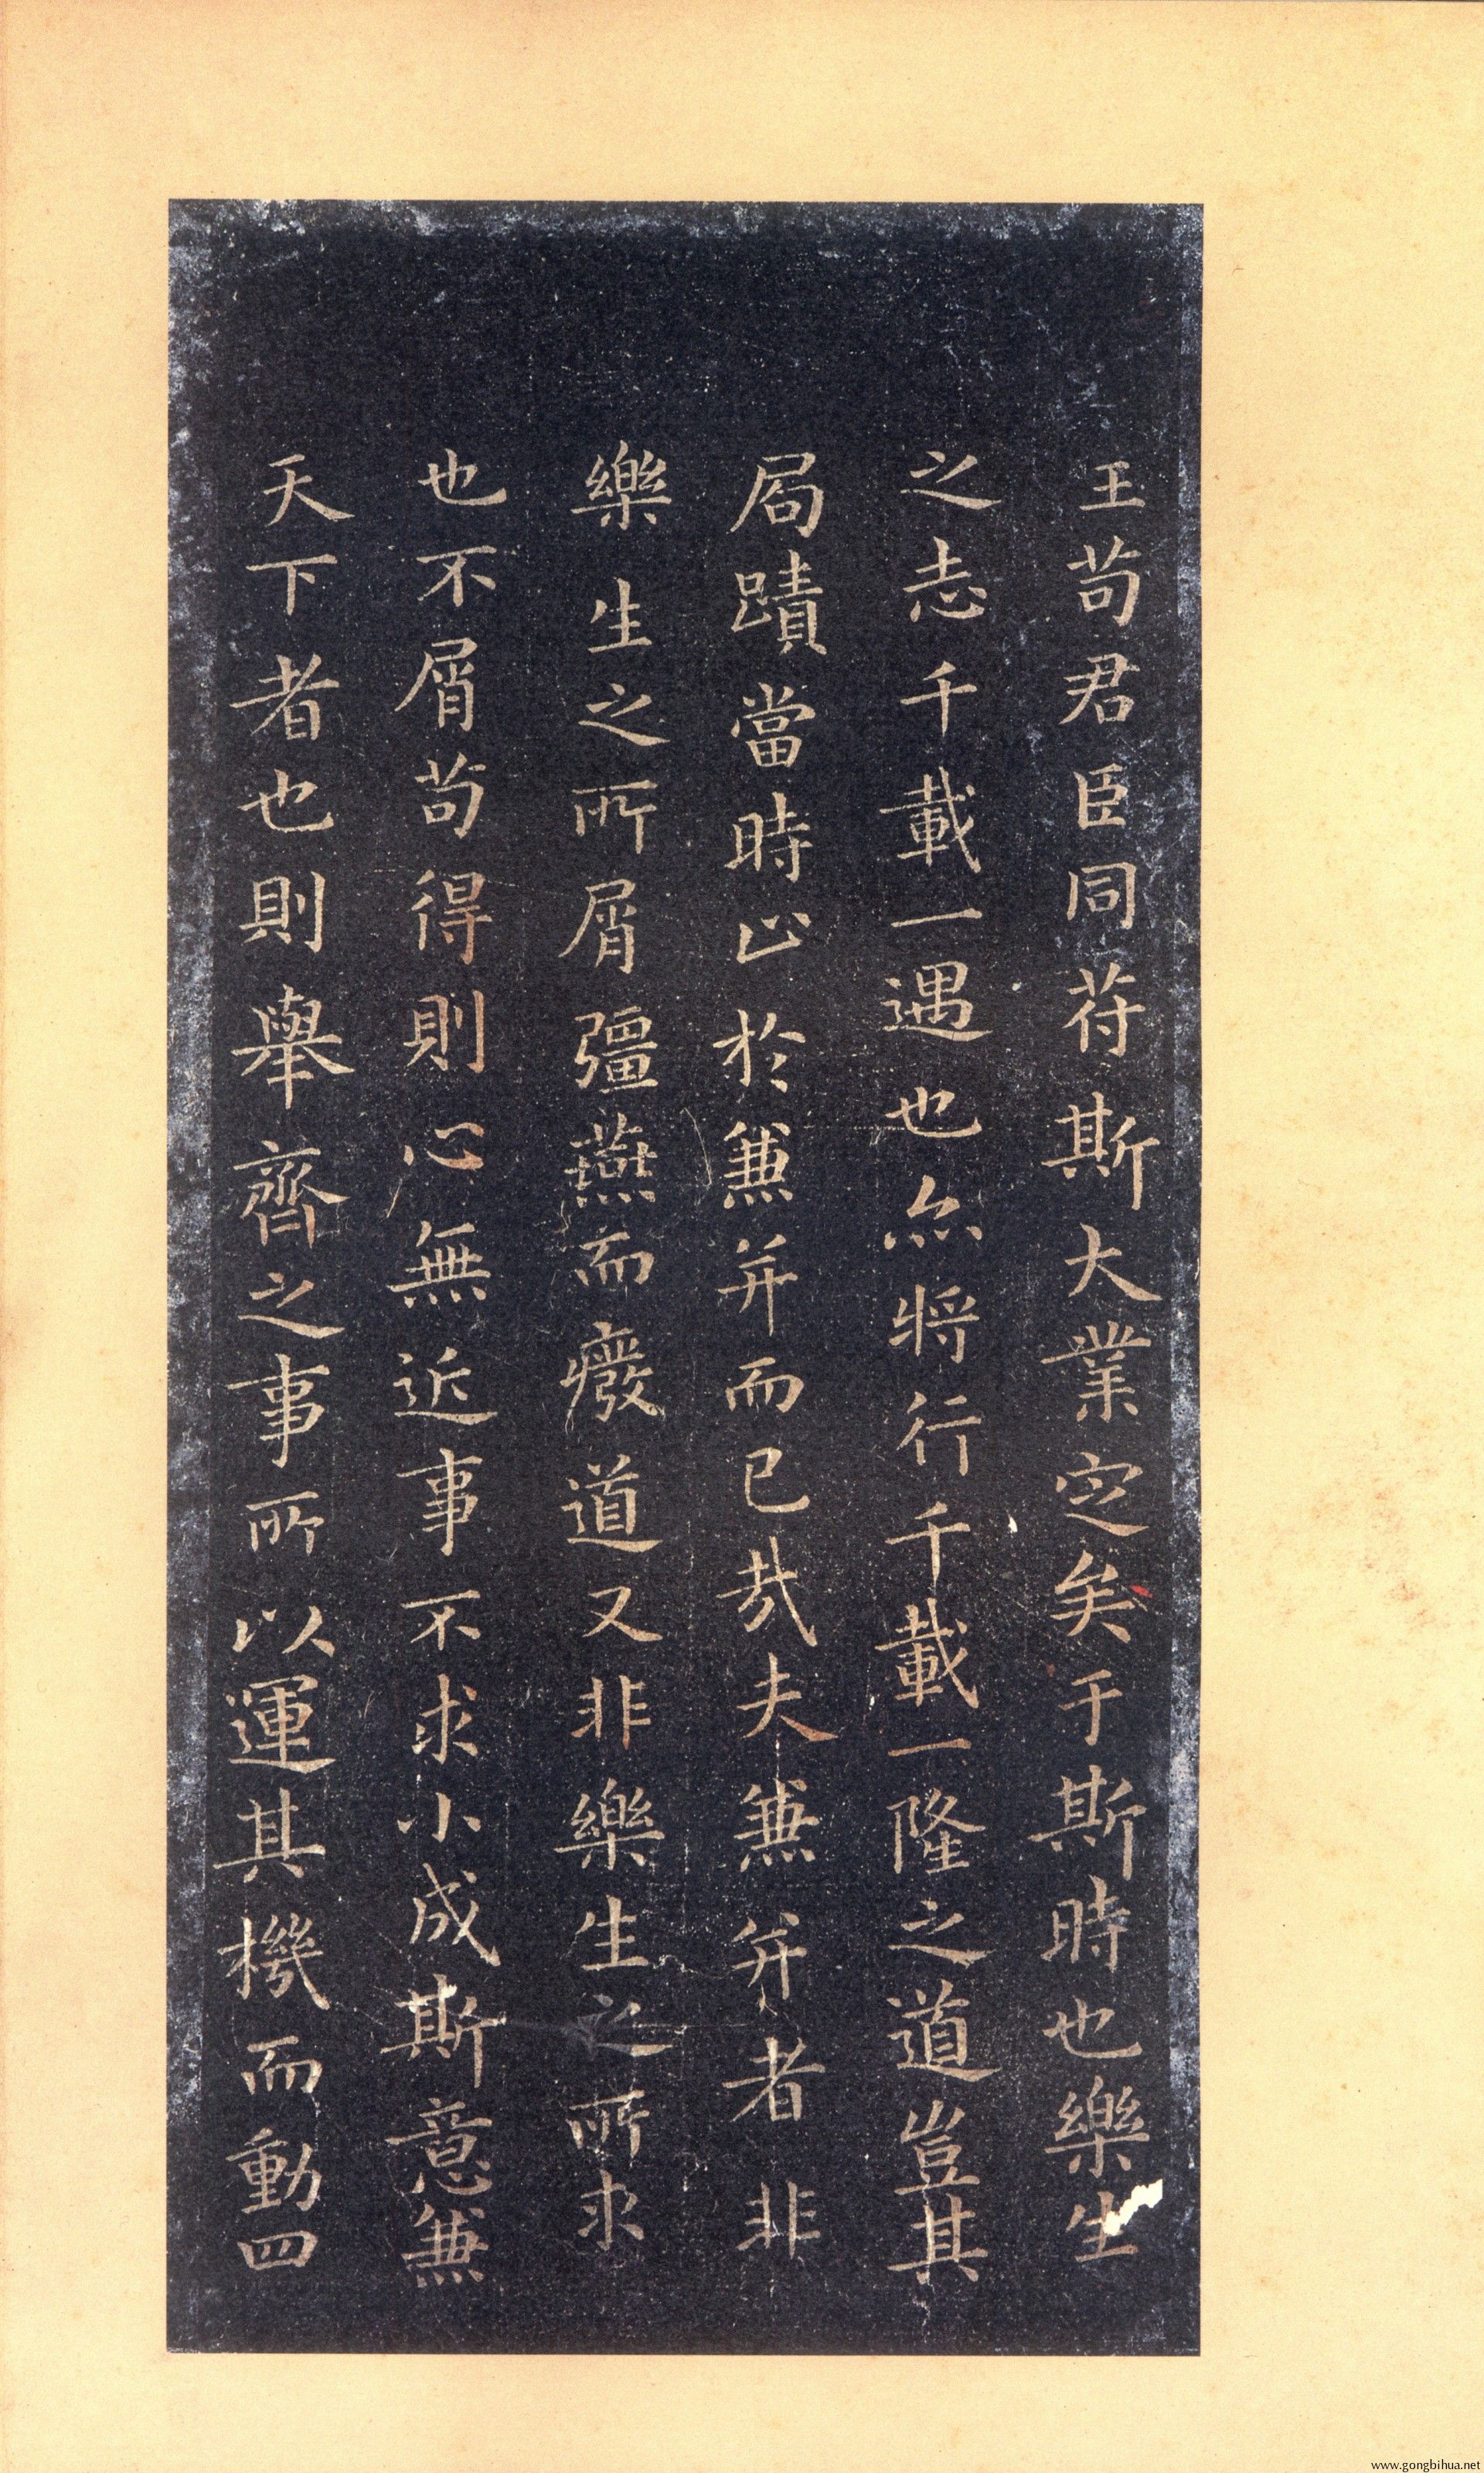 王苟君臣同苻斯大業定矣于斯時也樂生
之志千載一遇也亦將行千載一隆之道豈其
局蹟當時止於兼并而已哉夫兼并者非
樂生之所屑彊燕而廢道又非樂生之所求
也不屑苟得則心無近事不求小成斯意兼
天下者也則舉齊之事所以運其機而動四
www.gongbihua.net